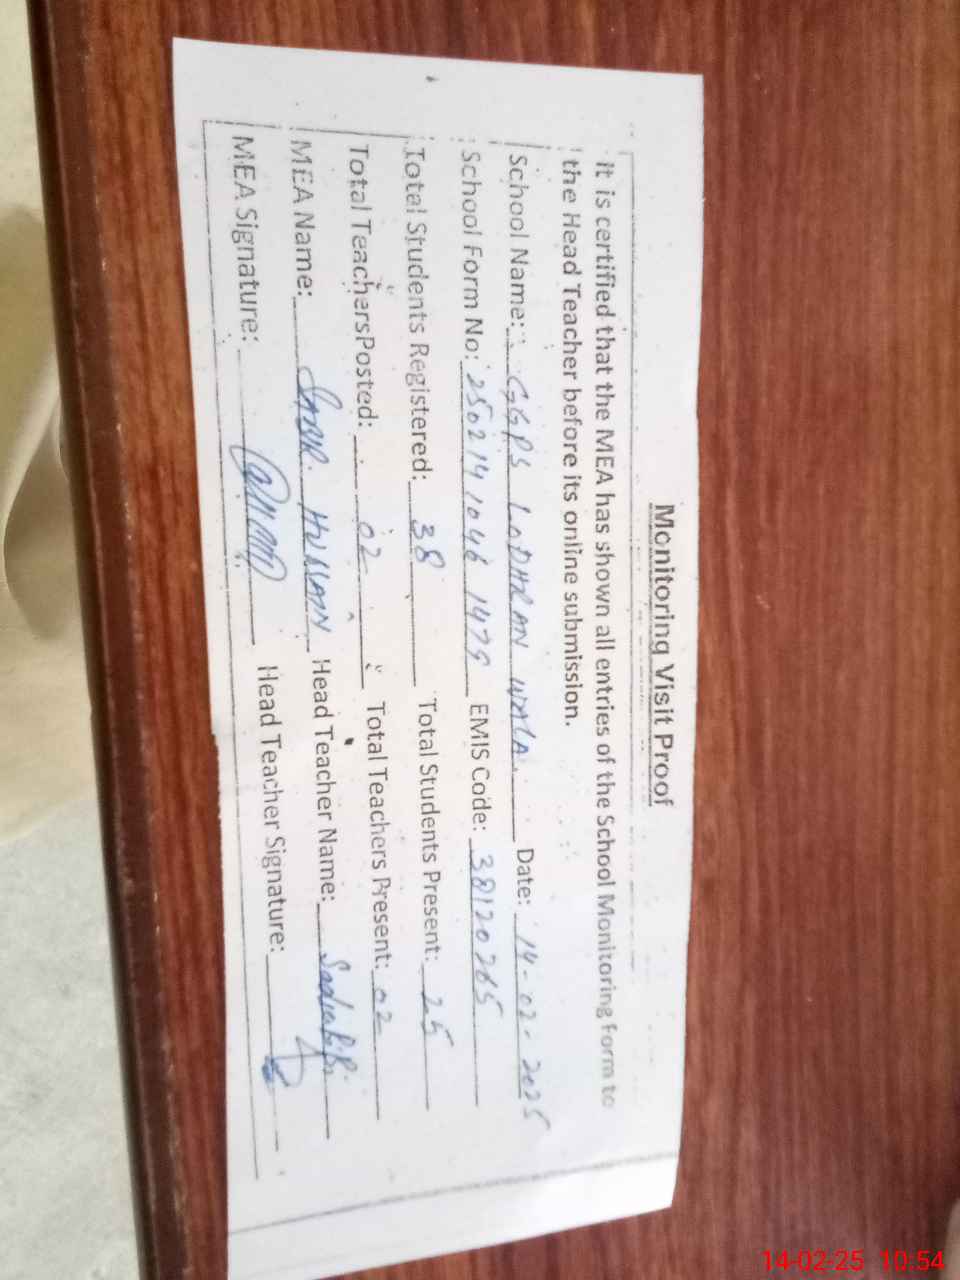 Monitoring Visit Proof
It is certified that the MEA has shown all entries of the School Monitoring Form to
the Head Teacher before its online submission.
School Name: GGPS LODHRAN WALA. Date: 14-02-2025
School Form No: 2502141046 1479 EMIS Code: 38120265
Total Students Registered: 38 Total Students Present: 25
Total TeachersPosted: 02 Total Teachers Present: 02
MEA Name: SABIR HUSSAIN Head Teacher Name: Sadia Bibi
MEA Signature: Head Teacher Signature:
14-02-25 10:54